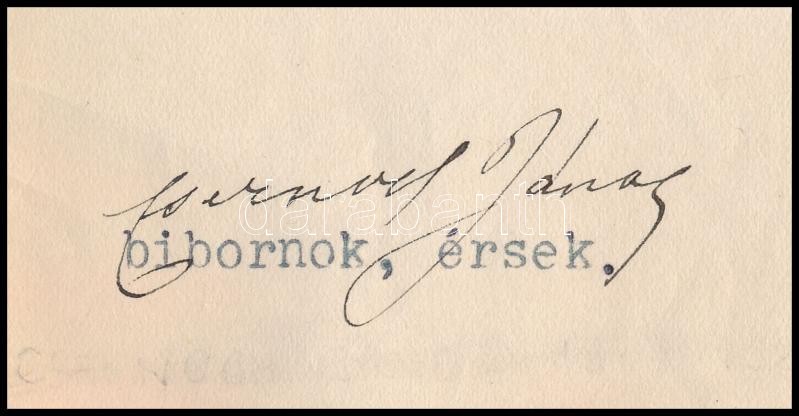 Csernoch János
bibornok, érsek.
darabanth